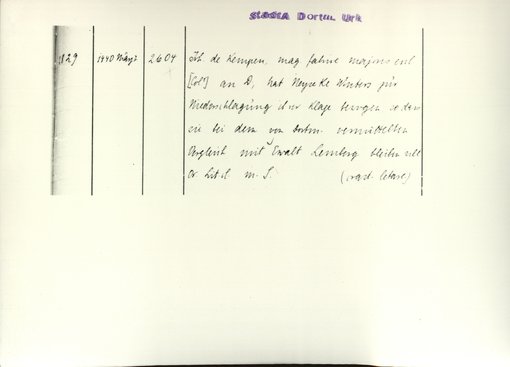 StadtA Dortm. Urk
1829 1440 März 7 2604 Joh. de Kempen, mag. fabric majoris eccl
[Col.] an D, hat Neyseke Winters zur
Niederschlagung ihrer Klage bewogen so dass
sie bei dem von Dortm. vermittelten
Vergleich mit Ewalt Lemberg bleiben will
Or Lit.cl m. S. (crast. letare)